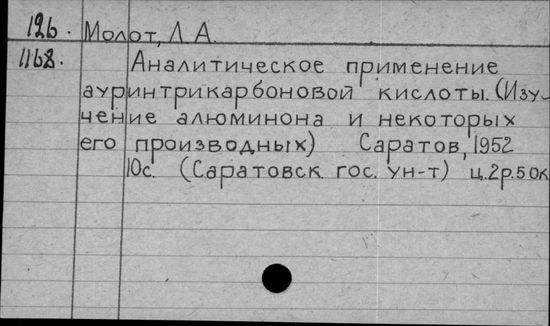 126. Молот, Л. А.
1168. Аналитическое применение
ауринтрикарбоновой кислоты. (Изу-
чение алюминона и некоторых
его производных) Саратов, 1952
10с. (Саратовск. гос. ун-т) ц. 2р. 50к